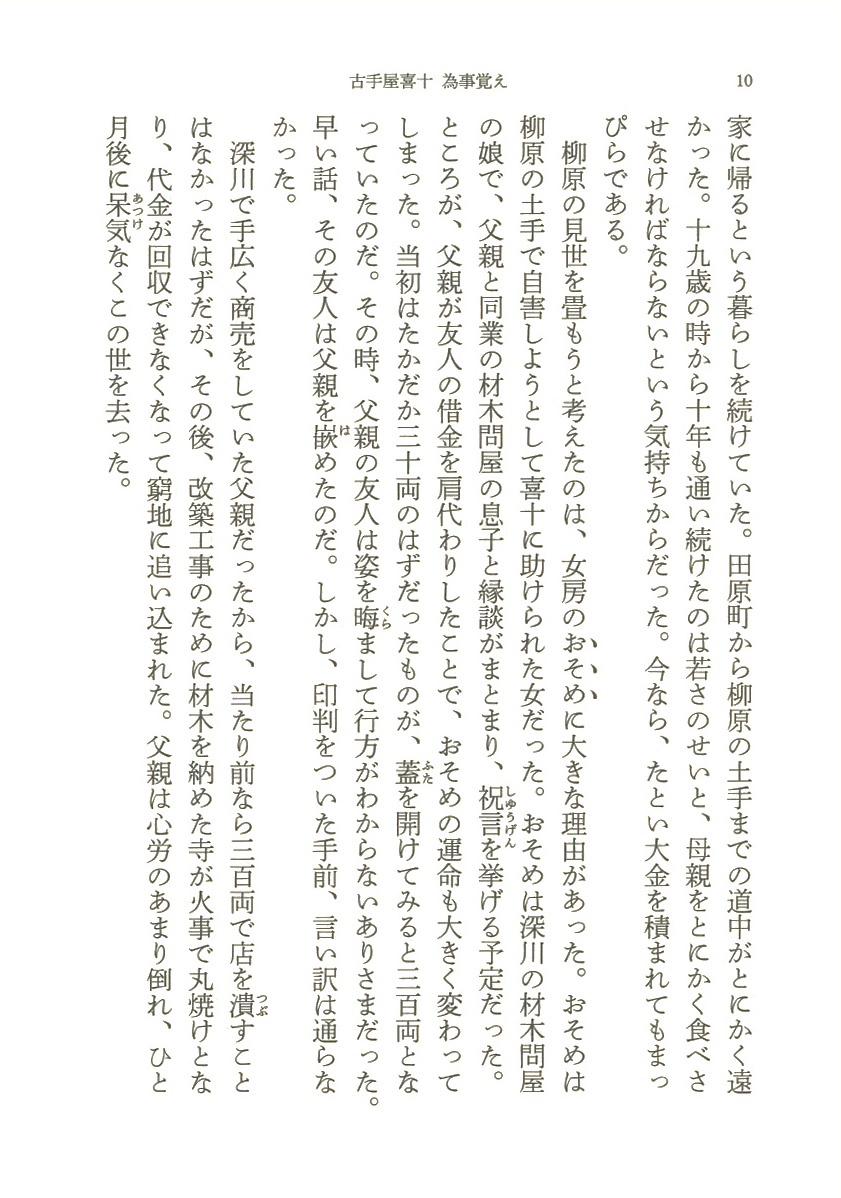 古手屋喜十 為事覚え
10
家に帰るという暮らしを続けていた。田原町から柳原の土手までの道中がとにかく遠
かった。十九歳の時から十年も通い続けたのは若さのせいと、母親をとにかく食べさ
せなければならないという気持ちからだった。今なら、たとい大金を積まれてもまっ
ぴらである。
柳原の見世を畳もうと考えたのは、女房のおそめに大きな理由があった。おそめは
柳原の土手で自害しようとして喜十に助けられた女だった。おそめは深川の材木問屋
の娘で、父親と同業の材木問屋の息子と縁談がまとまり、祝言しゆうげんを挙げる予定だった。
ところが、父親が友人の借金を肩代わりしたことで、おそめの運命も大きく変わって
しまった。当初はたかだか三十両のはずだったものが、蓋ふたを開けてみると三百両とな
っていたのだ。その時、父親の友人は姿を晦くらまして行方がわからないありさまだった。
早い話、その友人は父親を嵌はめたのだ。しかし、印判をついた手前、言い訳は通らな
かった。
深川で手広く商売をしていた父親だったから、当たり前なら三百両で店を潰つぶすこと
はなかったはずだが、その後、改築工事のために材木を納めた寺が火事で丸焼けとな
り、代金が回収できなくなって窮地に追い込まれた。父親は心労のあまり倒れ、ひと
月後に呆気あつけなくこの世を去った。